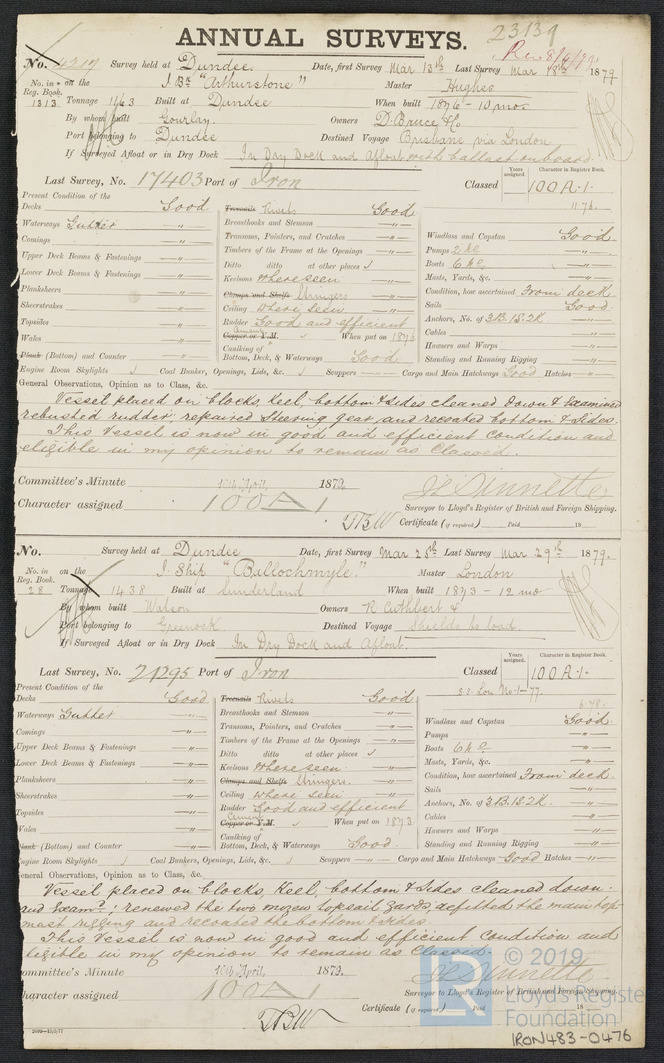 23139
ANNUAL SURVEYS.
Rec 8/4/79
No. 4217 Survey held at Dundee. Date, first Survey Mar 13th Last Survey Mar 18th 1879
No. in Reg. Book. 1313 on the I Bk "Arthurstone" Master Hughes
Tonnage 1163 Built at Dundee When built 1876 - 10 mo.
By whom built Gourlay. Owners D. Bruce & Co.
Port belonging to Dundee Destined Voyage Brisbane via London
If Surveyed Afloat or in Dry Dock In Dry Dock and Afloat with ballast onboard.
Last Survey, No. 17403 Port of Iron Classed Years assigned. Character in Register Book. 100 A.1.
11.76.
Present Condition of the
Decks Good Treenails Rivets Good
Waterways Gutter — " — Breasthooks and Stemson — " — Windlass and Capstan Good
Comings — " — Transoms, Pointers, and Crutches — " — Pumps 2 No — " —
Upper Deck Beams & Fastenings — " — Timbers of the Frame at the Openings — " — Boats 6 No — " —
Lower Deck Beams & Fastenings — " — Ditto ditto at other places ✓ Masts, Yards, &c. — " —
Planksheers — " — Keelsons where seen — " — Condition, how ascertained From deck
Sheerstrakes — " — Clamps and Shelfs Stringers — " — Sails Good
Topsides — " — Ceiling where seen — " — Anchors, No. of 3B. 1S. 2K. — " —
Wales — " — Rudder Good and efficient Cables — " —
Plank (Bottom) and Counter — " — Copper or Y.M. Cement ✓ When put on 1876 Hawsers and Warps — " —
Caulking of Bottom, Deck, & Waterways Good Standing and Running Rigging — " —
Engine Room Skylights ✓ Coal Bunker, Openings, Lids, &c. ✓ Scuppers — " — Cargo and Main Hatchways Good Hatches — " —
General Observations, Opinion as to Class, &c.
Vessel placed on blocks, Keel, bottom & sides cleaned down & Examined
rebushed rudder; repaired Steering gear, and recoated bottom & sides.
This Vessel is now in good and efficient condition and
eligible in my opinion to remain as Classed.
Committee's Minute 10th April, 1879.
Character assigned 100 A 1 Surveyor to Lloyd's Register of British and Foreign Shipping.
Certificate (if required) Paid 18
No. Survey held at Dundee Date, first Survey Mar 25th Last Survey Mar 29th 1879.
No. in Reg. Book. 28 on the I Ship "Ballochmyle." Master London
Tonnage 1438 Built at Sunderland When built 1873 - 12 mo
By whom built Watson Owners R Cuthbert &
Port belonging to Greenock Destined Voyage Shields to load
If Surveyed Afloat or in Dry Dock In Dry Dock and Afloat.
Last Survey, No. 21295 Port of Iron Classed Years assigned. Character in Register Book. 100 A.1.
s.s. Lon No. 1—77.
6.78.
Present Condition of the
Decks Good Treenails Rivets Good
Waterways Gutter — " — Breasthooks and Stemson — " — Windlass and Capstan Good
Comings — " — Transoms, Pointers, and Crutches — " — Pumps — " —
Upper Deck Beams & Fastenings — " — Timbers of the Frame at the Openings — " — Boats 6 No — " —
Lower Deck Beams & Fastenings — " — Ditto ditto at other places ✓ Masts, Yards, &c. — " —
Planksheers — " — Keelsons where seen — " — Condition, how ascertained From deck
Sheerstrakes — " — Clamps and Shelfs Stringers — " — Sails — " —
Topsides — " — Ceiling where seen — " — Anchors, No. of 3B. 1S. 2K. — " —
Wales — " — Rudder Good and efficient Cables — " —
Plank (Bottom) and Counter — " — Copper or Y.M. Cement When put on 1873 Hawsers and Warps — " —
Caulking of Bottom, Deck, & Waterways Good. Standing and Running Rigging — " —
Engine Room Skylights ✓ Coal Bunkers, Openings, Lids, &c. ✓ Scuppers — " — Cargo and Main Hatchways Good Hatches — " —
General Observations, Opinion as to Class, &c.
Vessel placed on blocks, Keel, bottom & sides cleaned down
and Examd.; renewed the two mizen topsail yards, refitted the main top
mast rigging and recoated the bottom & sides.
This Vessel is now in good and efficient condition and
eligible in my opinion to remain as Classed.
Committee's Minute 10th April, 1879.
Character assigned 100 A 1 Surveyor to Lloyd's Register of British and Foreign Shipping
Certificate (if required) Paid 18
LR © 2019
Lloyd's Register
Foundation
IRON483-0476